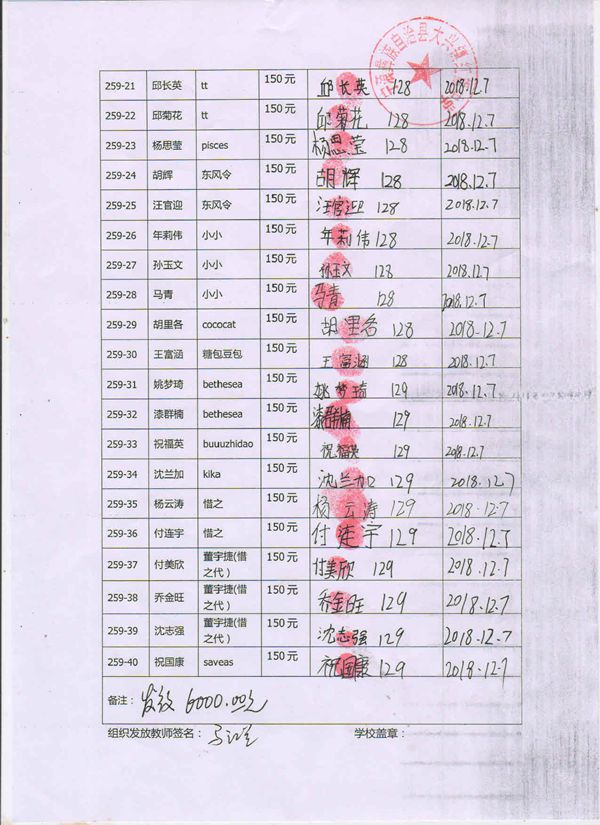 族自治县大兴镇
259-21 邱长英 tt 150元 邱长英 128 2018.12.7
259-22 邱菊花 tt 150元 邱菊花 128 2018.12.7
259-23 杨思莹 pisces 150元 杨思莹 128 2018.12.7
259-24 胡辉 东风令 150元 胡辉 128 2018.12.7
259-25 汪官迎 东风令 150元 汪官迎 128 2018.12.7
259-26 年莉伟 小小 150元 年莉伟 128 2018.12.7
259-27 孙玉文 小小 150元 孙玉文 128 2018.12.7
259-28 马青 小小 150元 马青 128 2018.12.7
259-29 胡里各 cococat 150元 胡里各 128 2018.12.7
259-30 王富涵 糖包豆包 150元 王富涵 128 2018.12.7
259-31 姚梦琦 bethesea 150元 姚梦琦 129 2018.12.7
259-32 漆群楠 bethesea 150元 漆群楠 129 2018.12.7
259-33 祝福英 buuuzhidao 150元 祝福英 129 2018.12.7
259-34 沈兰加 kika 150元 沈兰加 129 2018.12.7
259-35 杨云涛 惜之 150元 杨云涛 129 2018.12.7
259-36 付连宇 惜之 150元 付连宇 129 2018.12.7
259-37 付美欣 董宇捷(惜之代） 150元 付美欣 129 2018.12.7
259-38 乔金旺 董宇捷(惜之代） 150元 乔金旺 129 2018.12.7
259-39 沈志强 董宇捷(惜之代） 150元 沈志强 129 2018.12.7
259-40 祝国康 saveas 150元 祝国康 129 2018.12.7
备注： 发放 6000.00元
组织发放教师签名： 学校盖章：